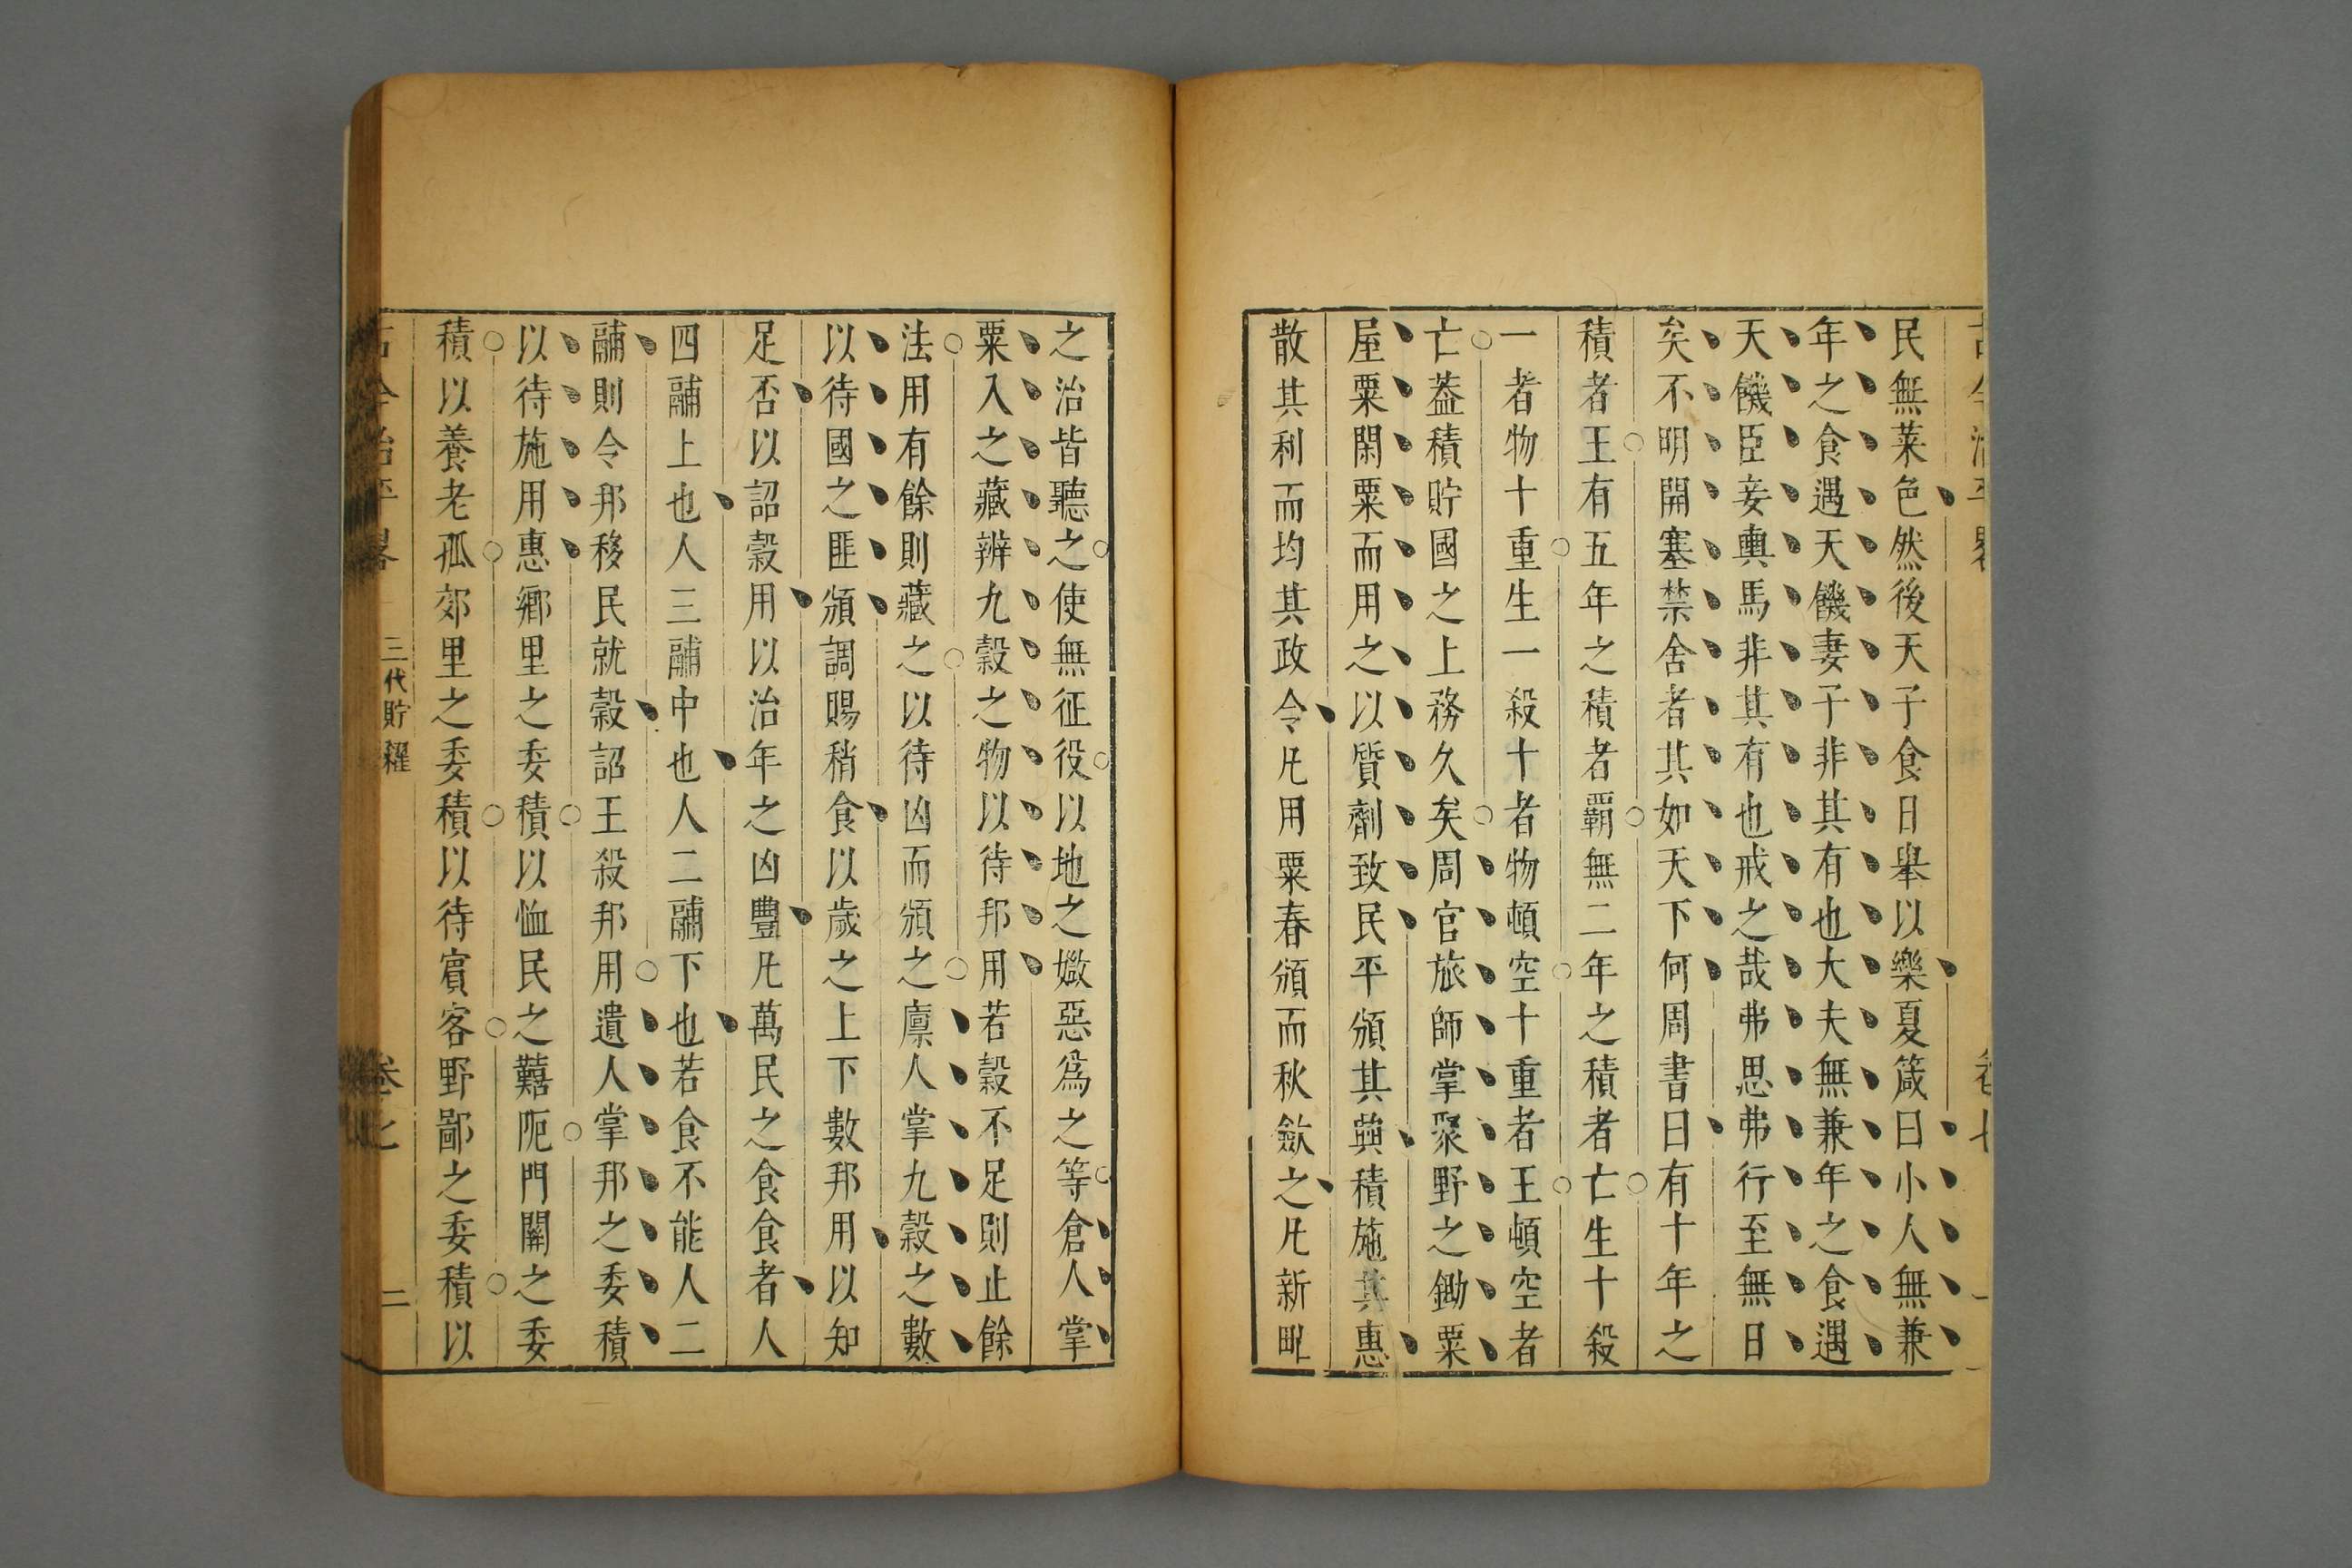 民無菜色然後天子食日舉以樂夏箴曰小人無兼
年之食遇天饑妻子非其有也大夫無兼年之食遇
天饑臣妾輿馬非其有也戒之哉弗思弗行至無日
矣不明開塞禁舍者其如天下何周書曰有十年之
積者王有五年之積者霸無二年之積者亡生十殺
一者物十重生一殺十者物頓空十重者王頓空者
亡蓋積貯國之上務久矣周官旅師掌聚野之鋤粟
屋粟閑粟而用之以質劑致民平頒其興積施其惠
散其利而均其政令凡用粟春頒而秋斂之凡新甿
之治皆聽之使無征役以地之媺惡爲之等倉人掌
粟入之藏辨九穀之物以待邦用若穀不足則止餘
法用有餘則藏之以待凶而頒之廪人掌九穀之數
以待國之匪頒調賜稍食以歲之上下數邦用以知
足否以詔穀用以治年之凶豐凡萬民之食食者人
四鬴上也人三鬴中也人二鬴下也若食不能人二
鬴則令邦移民就穀詔王殺邦用遺人掌邦之委積
以待施用惠鄉里之委積以恤民之囏阨門關之委
積以養老孤郊里之委積以待賓客野鄙之委積以
古今治平畧 三代貯糴 卷之 二